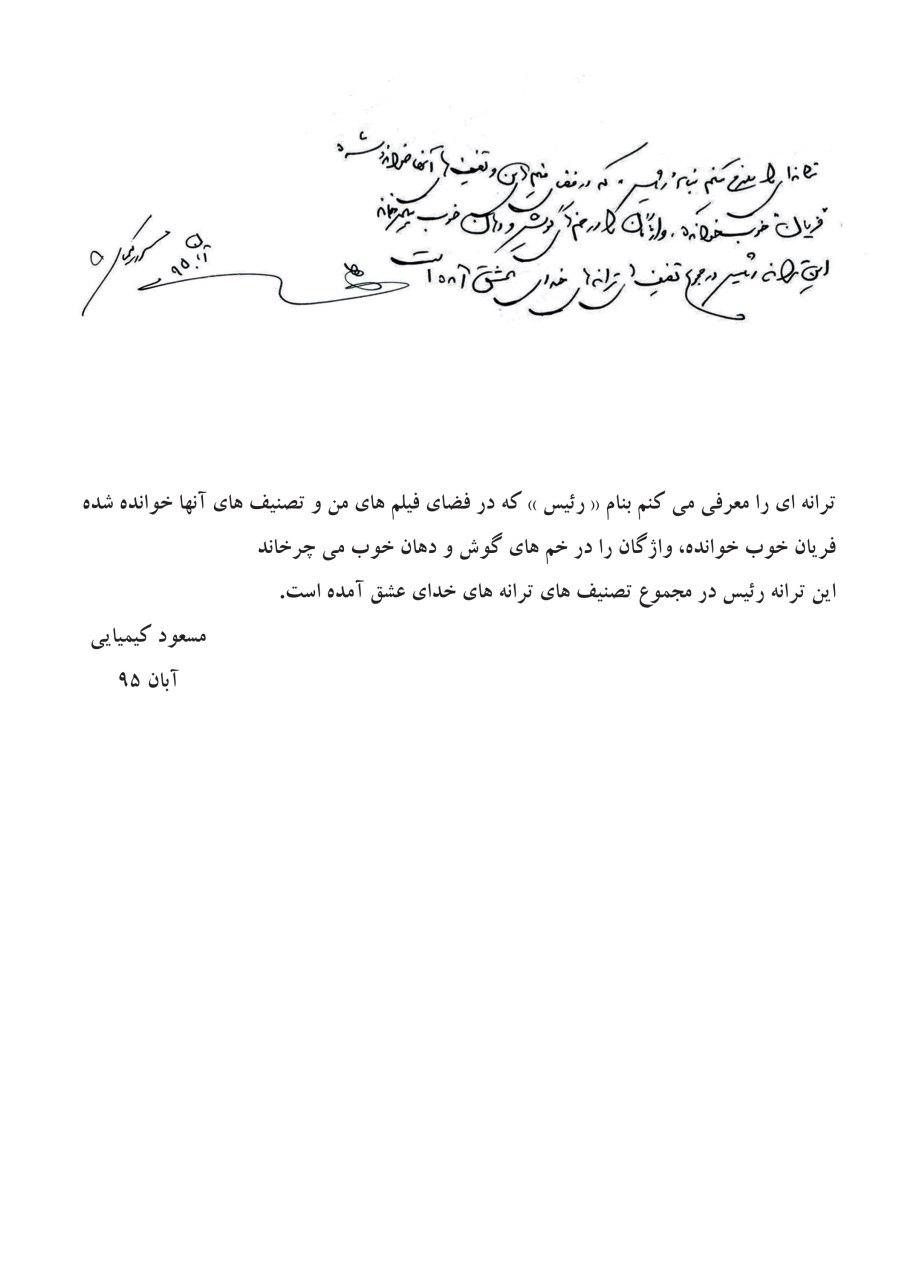 ترانه ای را معرفی می کنم بنام رئیس. که در فضای فیلم های من و تصنیف های آنها خوانده شده
"فریان" خوب خوانده، واژگان را در خم های گوش و دهان خوب می چرخاند
این ترانه رئیس در مجموع تصنیف های ترانه های خدای عشق آمده است
مسعود کیمیایی
آبان ۹۵
ترانه ای را معرفی می کنم بنام « رئیس » که در فضای فیلم های من و تصنیف های آنها خوانده شده
فریان خوب خوانده، واژگان را در خم های گوش و دهان خوب می چرخاند
این ترانه رئیس در مجموع تصنیف های ترانه های خدای عشق آمده است.
مسعود کیمیایی
آبان ۹۵